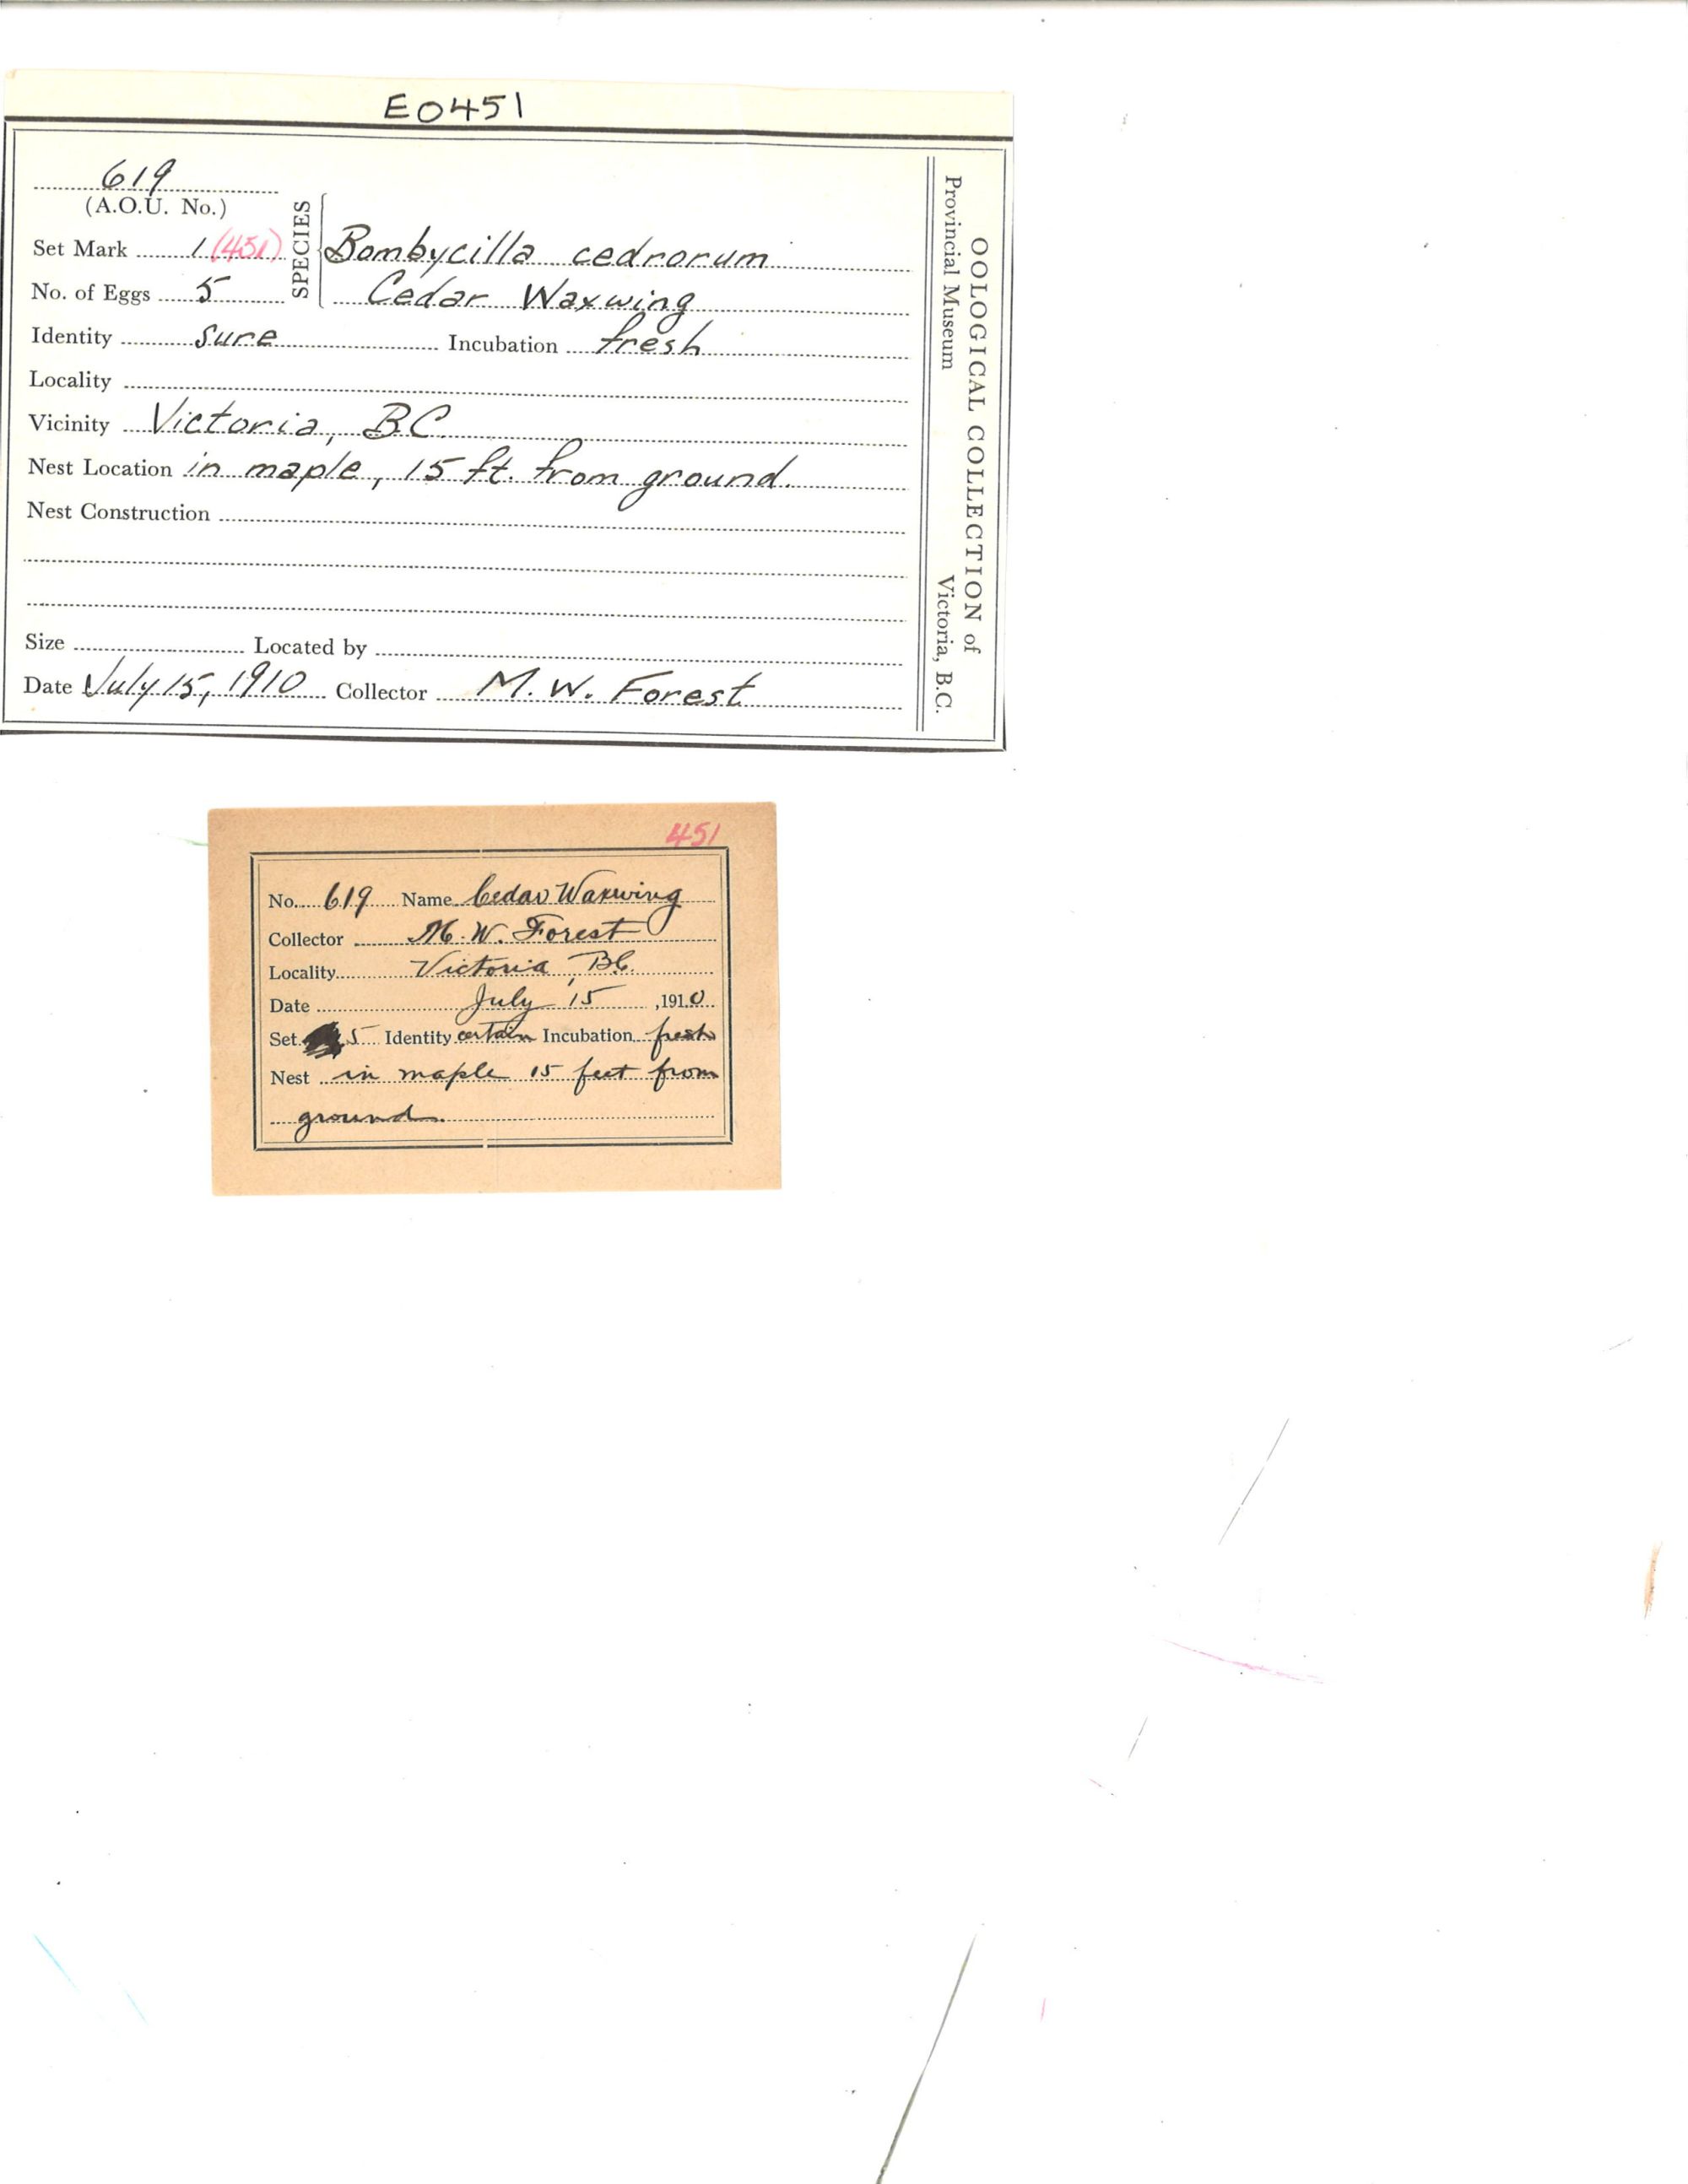 E0451
619
(A.O.U. No.)
Set Mark 1 (451)
No. of Eggs 5
SPECIES
Bombycilla cedrorum
Cedar Waxwing
Identity sure Incubation fresh
Locality
Vicinity Victoria, B.C.
Nest Location in maple, 15 ft. from ground.
Nest Construction
Size Located by
Date July 15, 1910 Collector M. W. Forest
OOLOGICAL COLLECTION of
Provincial Museum Victoria, B.C.
451
No. 619 Name Cedar Waxwing
Collector M. W. Forest
Locality Victoria, B.C.
Date July 15, 1910
Set 5 Identity certain Incubation fresh
Nest in maple 15 feet from
ground.